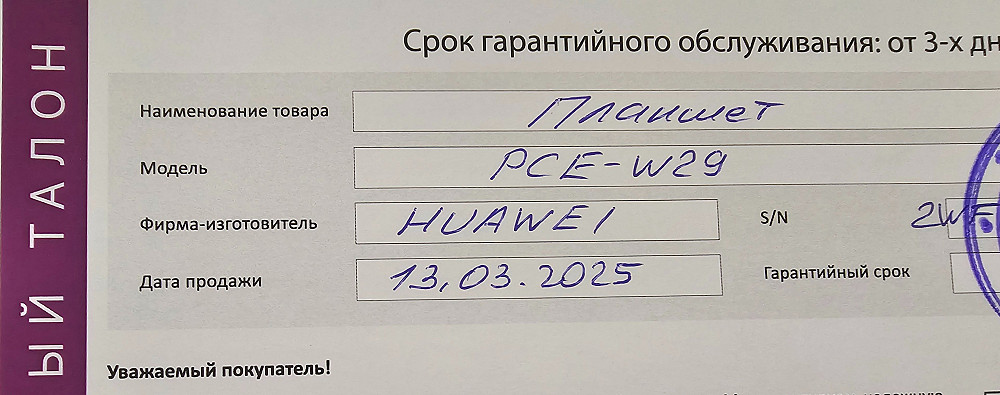 ЫЙ ТАЛОН
Срок гарантийного обслуживания: от 3-х дн
Наименование товара Планшет
Модель PCE-W29
Фирма-изготовитель HUAWEI S/N 2WF
Дата продажи 13.03.2025 Гарантийный срок
Уважаемый покупатель!